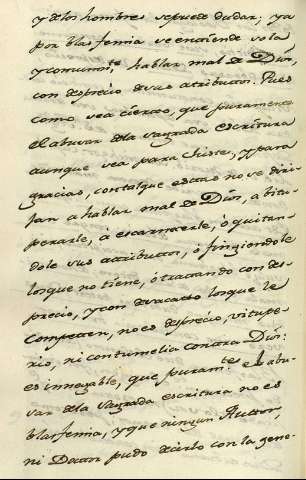 y de los hombres se puede dudar; ya
por blasfemia se entiende sola
y comunm.te hablar mal de Dios,
con desprecio de sus atributos. Pues
como sea cierto, que puramente
el abusar dela sagrada escritura
aunque sea para chiste, y para
gracias, contalque estas no se diri-
jan a hablar mal de Dios, a bitu-
perarle, á escarnecerle, ó quitan-
dole sus atributos, ó fingiendole
los que no tiene, ó tractando con des-
precio, y con desacato los que le
competen, no es desprecio, vitupe-
rio, ni contumelia contra Dios:
es innegable, que puram.te el abu-
sar dela sagrada escritura no es
blasfemia, y que ningun Auctor,
ni Doctor pudo decirlo con la gene-